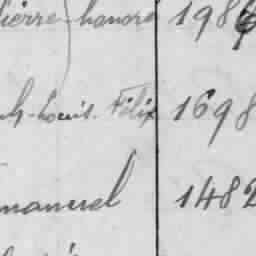 Pierre-honoré 198
h-Louis-Félix 1698
manuel 1482